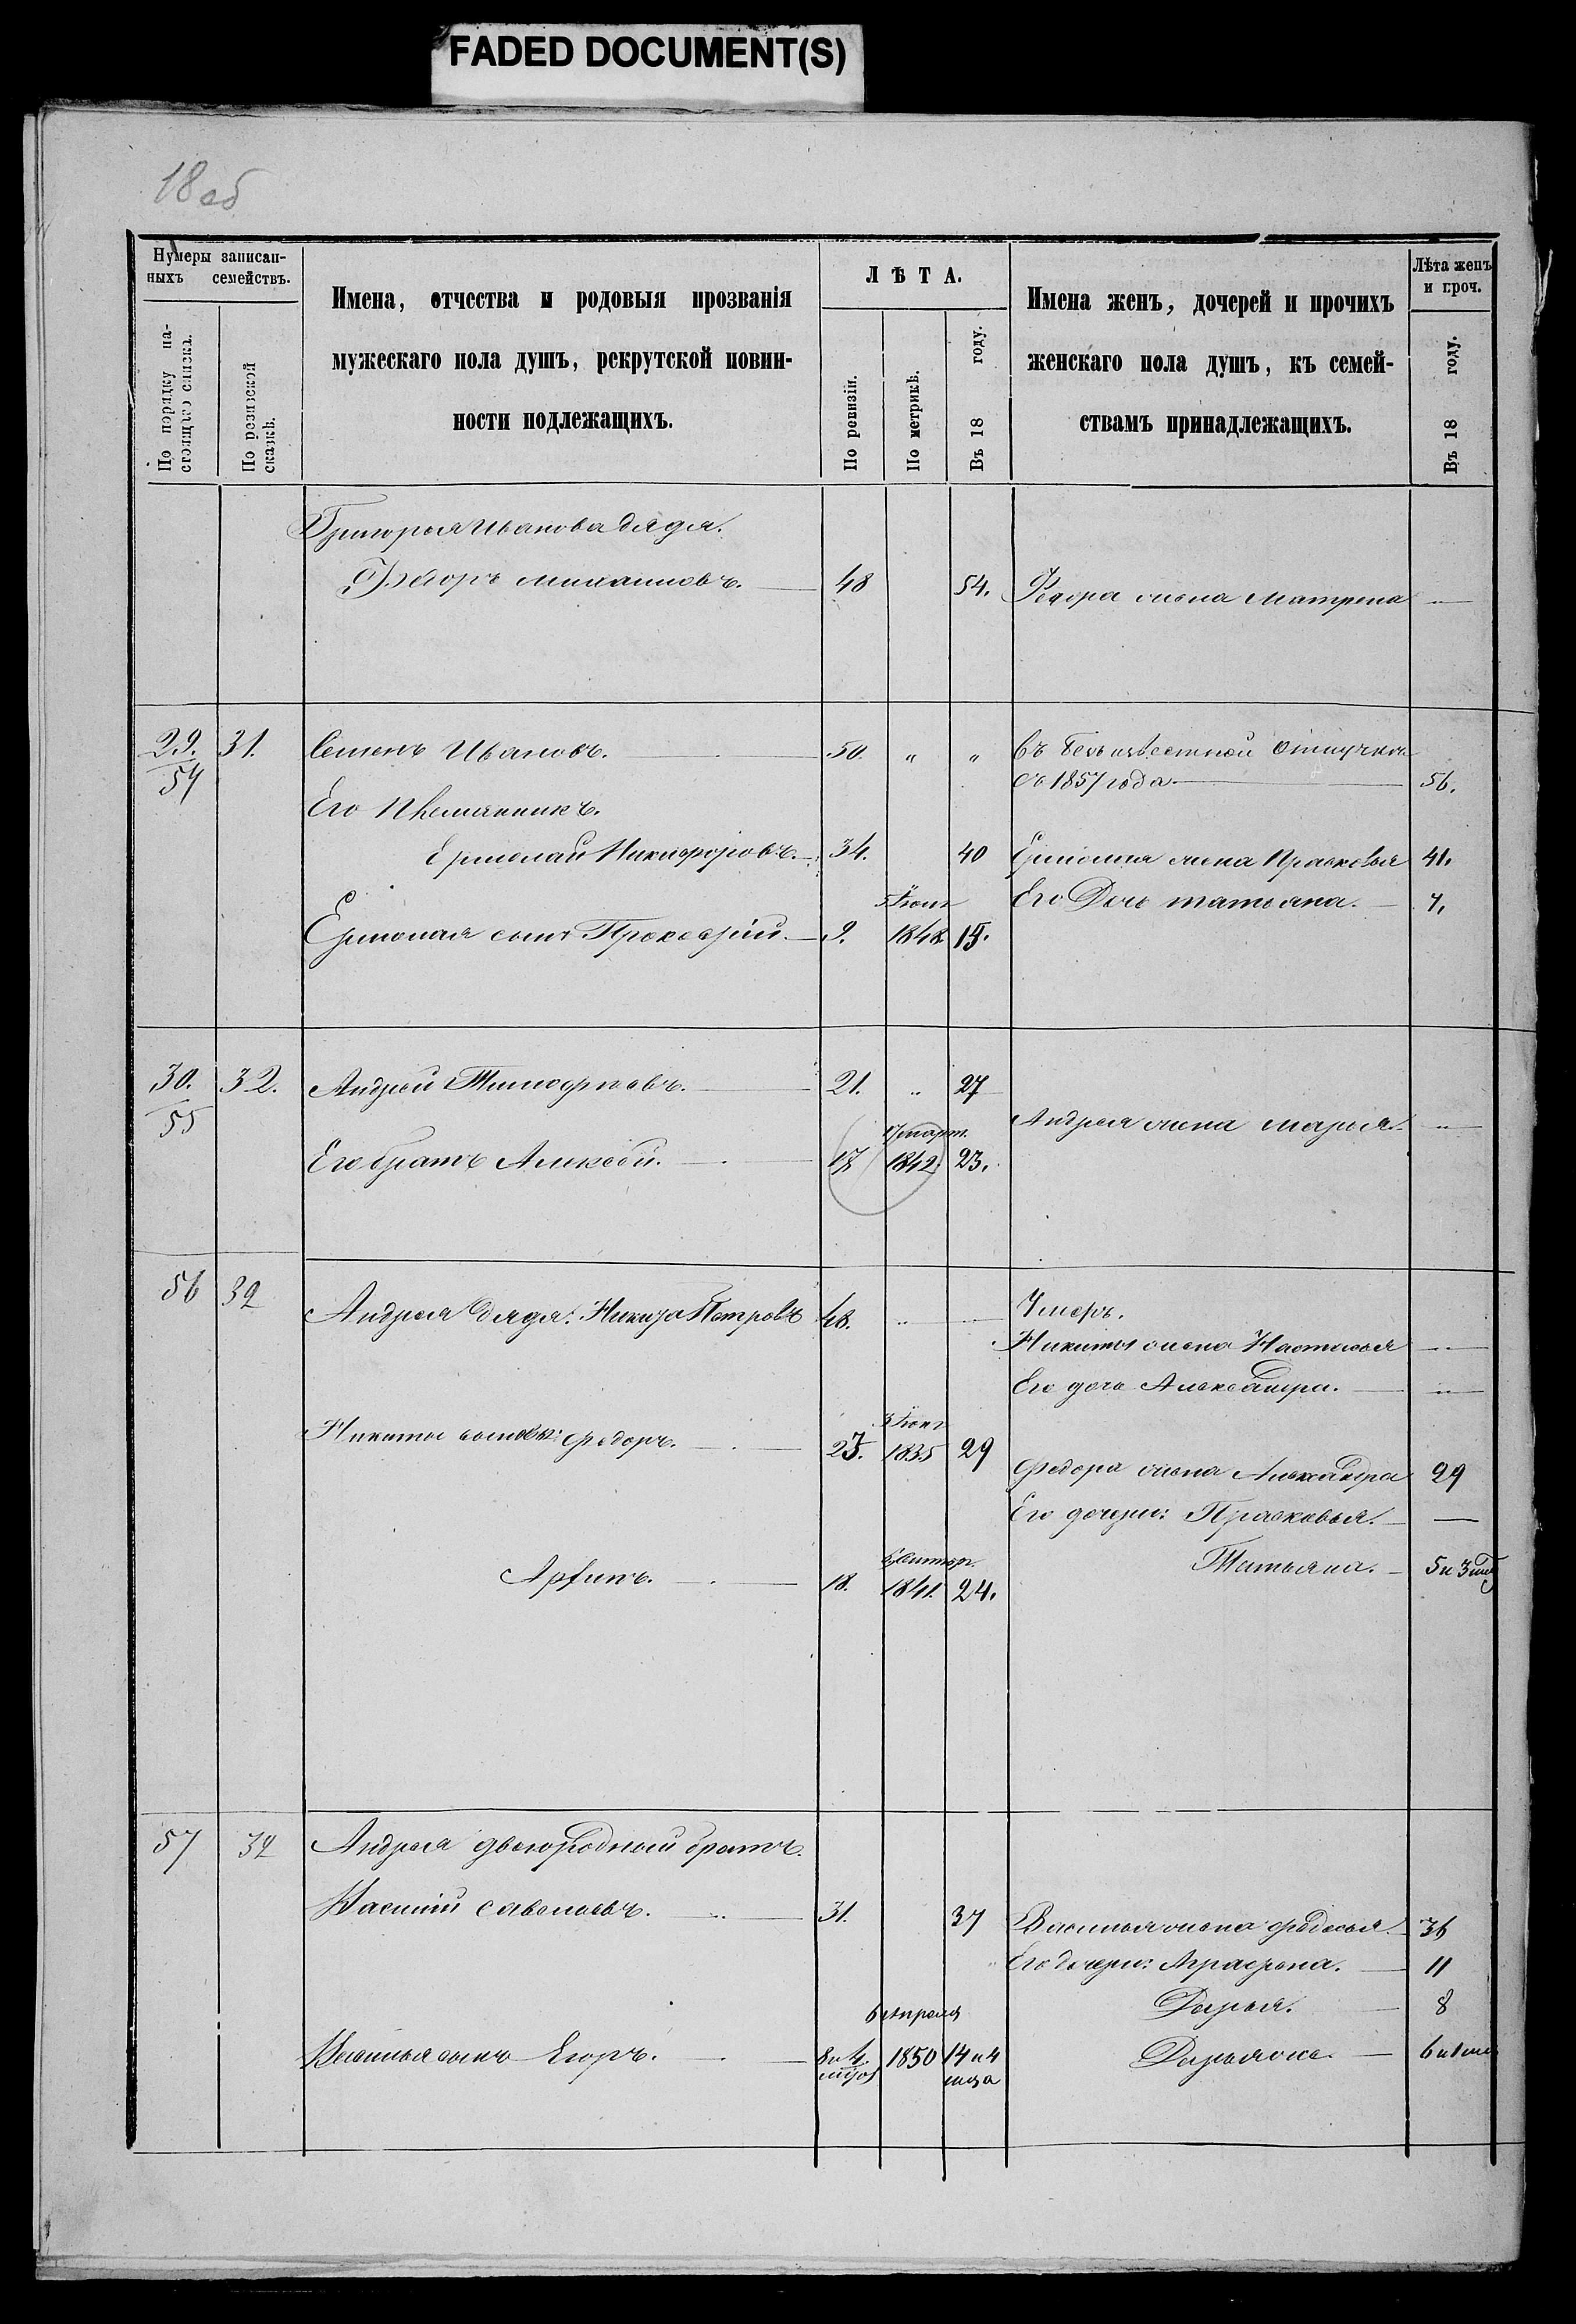 FADED DOCUMENT(S)
18 об
Нумеры записан-
ныхъ семействъ.
По порядку на-
стоящаго списка.
По ревизской
сказкѣ.
Имена, отчества и родовыя прозванія
мужескаго пола душъ, рекрутской повин-
ности подлежащихъ.
ЛѢТА.
По ревизіи.
По метрикѣ.
Въ 18 году.
Имена женъ, дочерей и прочихъ
женскаго пола душъ, къ семей-
ствамъ принадлежащихъ.
Лѣта женъ
и проч.
Въ 18 году.
Григорья Иванова дядя.
Ѳедоръ Михаиловъ. 48 54. Федора жена Матрена "
29. 31. Семенъ Ивановъ. 50. " " Въ безъизвестной отлучки
54 съ 1857 года 56.
Его Племянникъ.
Ермолай Никифоровъ. 34. 40 Ермолая жена Прасковья 41.
5 Іюня Его Дочь татьяна. 7,
Ермолая сынъ Прокофій. 9. 1848. 15.
30. 32. Андрей Тимофѣевъ. 21. " 27
55 Андрея жена марья. "
17 март.
Его братъ Алексѣй. 17 1842. 23.
56 32 Андрея дядя: Никита Петровъ 48. " Умеръ.
Никиты жена Настасья "
Его дочь Александра. "
3 Іюня
Никиты сыновья: Федоръ. 23. 1835 29
Федора жена Александра 29
Его дочери: Прасковья. —
Октябр.
Татьяна. 5 и 3 мѣс
Архипъ. 18. 1841. 24.
57 32 Андрея двоюродный братъ.
Василій Савельевъ. 31. 37 Василья жена Федосья 36
Его дочери: Аграфена. 11
6 Апреля Дарья. 8
Василья сынъ Егоръ. 8 и 4. 1850 14 и 4 Дарья 6 и 1 мѣс
мѣс мѣса